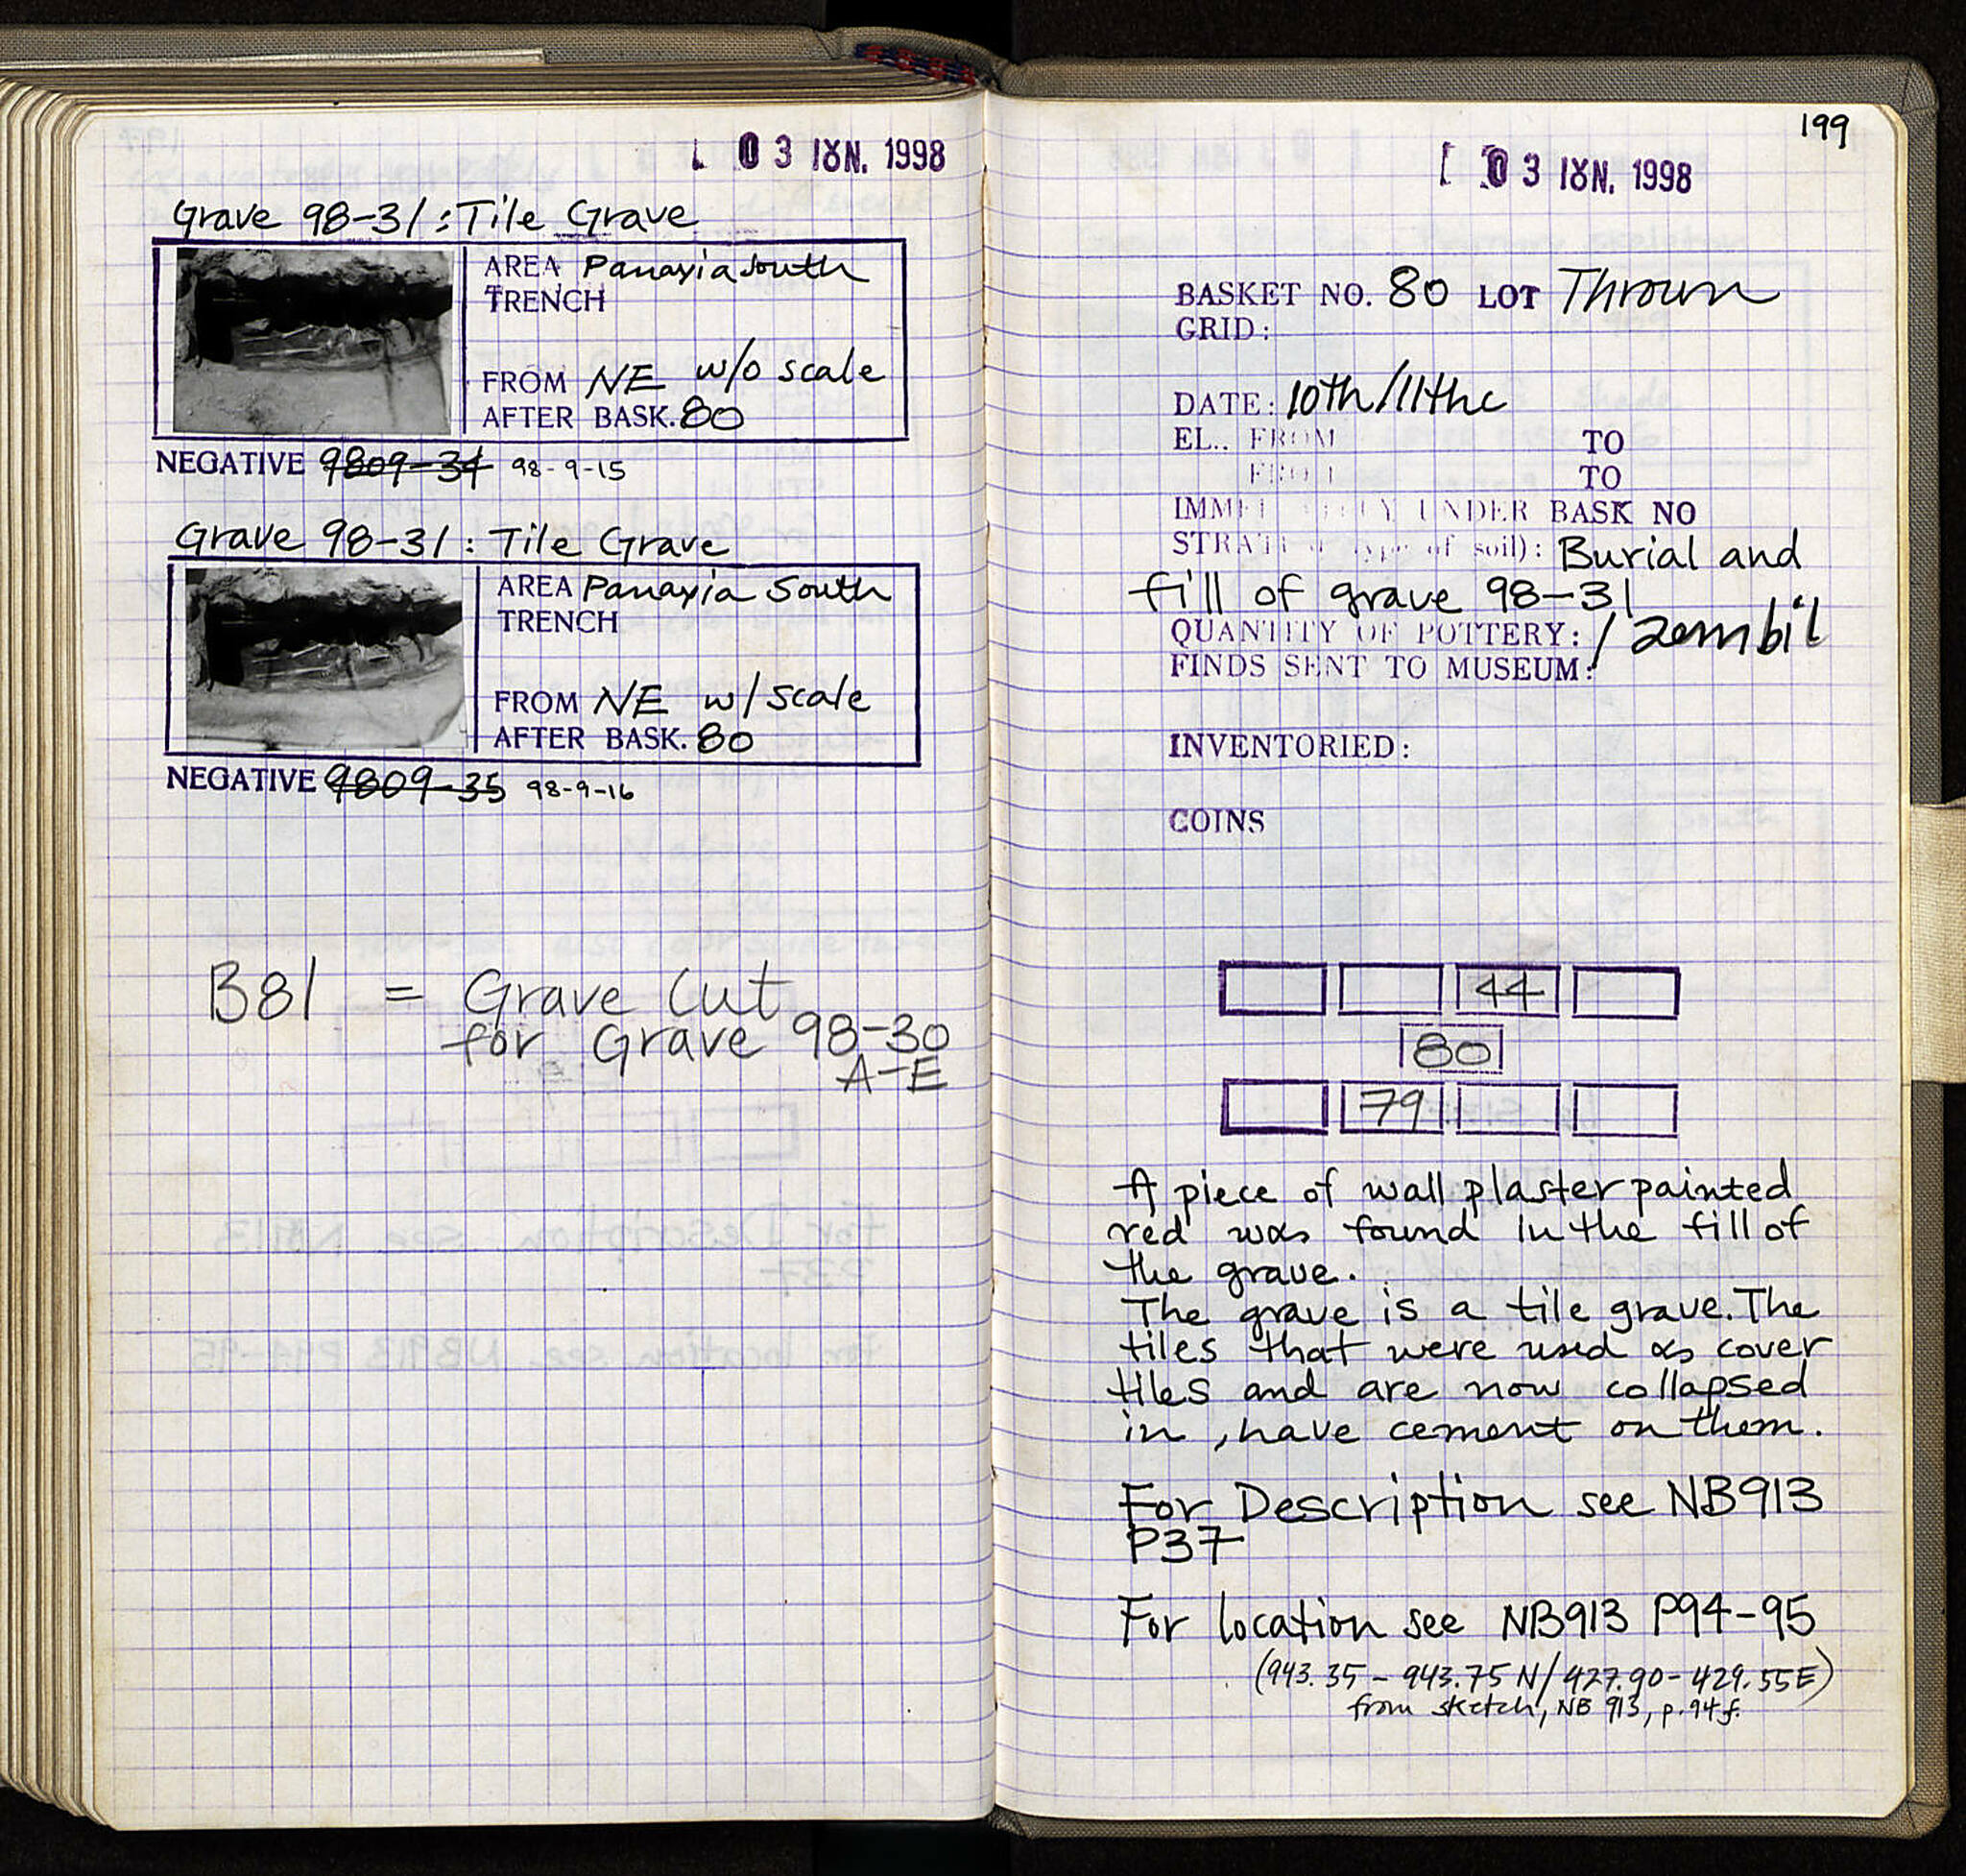 03 ΙΟΥΝ. 1998
Grave 98-31: Tile Grave
AREA Panayia South
TRENCH
FROM NE w/o scale
AFTER BASK. 80
NEGATIVE 9809-34 98-9-15
Grave 98-31: Tile Grave
AREA Panayia South
TRENCH
FROM NE w/ scale
AFTER BASK. 80
NEGATIVE 9809-35 98-9-16
B81 = Grave Cut
for Grave 98-30
A-E
199
03 ΙΟΥΝ. 1998
BASKET NO. 80 LOT Thrown
GRID:
DATE: 10th/11thc
EL.. FROM TO
FROM TO
IMMEDIATELY UNDER BASK NO
STRATUM (type of soil): Burial and
fill of grave 98-31
QUANTITY OF POTTERY: 1 zembil
FINDS SENT TO MUSEUM:
INVENTORIED:
COINS
44
80
79
A piece of wall plaster painted
red was found in the fill of
the grave.
The grave is a tile grave. The
tiles that were used as cover
tiles and are now collapsed
in, have cement on them.
For Description see NB913
P37
For location see NB913 P94-95
(943.35 - 943.75 N/ 427.90 - 429.55E)
from sketch, NB 913, p.94f.